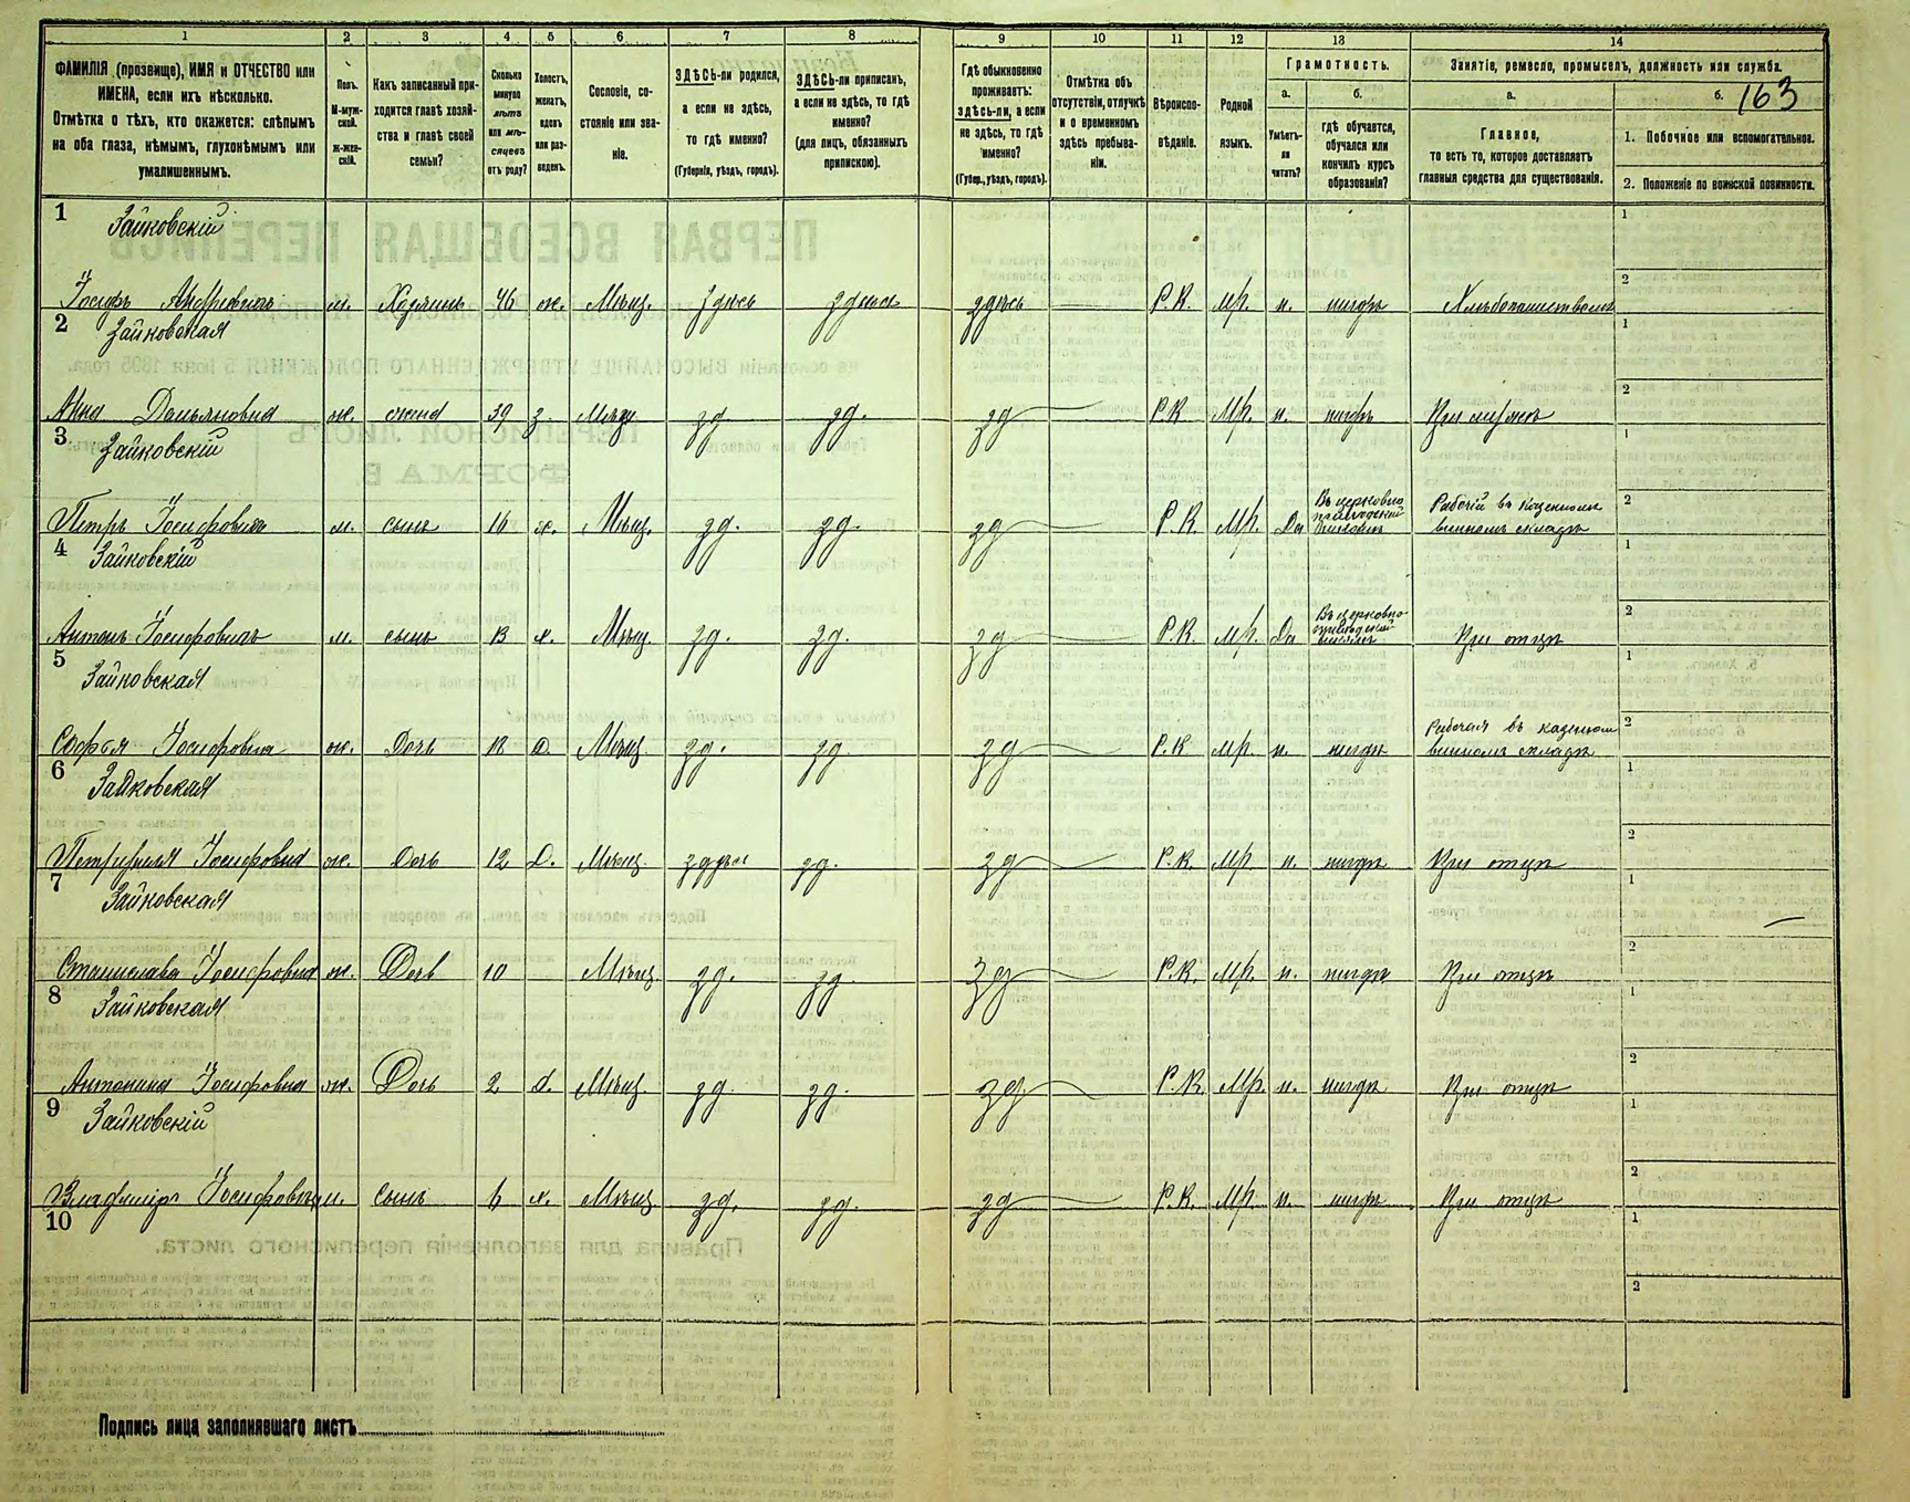 1 2 3 4 5 6 7 8 9 10 11 12 13 14
163
ФАМИЛІЯ (прозвище), ИМЯ и ОТЧЕСТВО или ИМЕНА, если ихъ нѣсколько.
Отмѣтка о тѣхъ, кто окажется: слѣпымъ на оба глаза, нѣмымъ, глухонѣмымъ или умалишеннымъ.
Полъ.
М-мужской.
ж-женскій.
Какъ записанный приходится главѣ хозяйства и главѣ своей семьи?
Сколько минуло лѣтъ или мѣсяцевъ отъ роду?
Холостъ, женатъ, вдовъ или разведенъ.
Сословіе, состояніе или званіе.
ЗДѢСЬ-ли родился, а если не здѣсь, то гдѣ именно?
(Губернія, уѣздъ, городъ).
ЗДѢСЬ-ли приписанъ, а если не здѣсь, то гдѣ именно?
(для лицъ, обязанныхъ припискою).
Гдѣ обыкновенно проживаетъ: здѣсь-ли, а если не здѣсь, то гдѣ именно?
(Губер., уѣздъ, городъ).
Отмѣтка объ отсутствіи, отлучкѣ и о временномъ здѣсь пребываніи.
Вѣроисповѣданіе.
Родной языкъ.
Грамотность.
а.
Умѣетъ-ли читать?
б.
гдѣ обучается, обучался или кончилъ курсъ образованія?
Занятіе, ремесло, промыселъ, должность или служба.
а.
Главное,
то есть то, которое доставляетъ главныя средства для существованія.
б.
1. Побочное или вспомогательное.
2. Положеніе по воинской повинности.
1 Зайковскій
Іосифъ Андреевичъ м. Хозяинъ 46 ж. Мѣщ. здѣсь здѣсь здѣсь Р.К. Мр. н. нигдѣ Хлѣбопашествомъ
2 Зайковская
Анна Дамьяновна ж. жена 39 з. Мѣщ. зд. зд. зд Р.К. Мр. н. нигдѣ При мужѣ
3 Зайковскій
Петръ Іосифовичъ м. сынъ 16 х. Мѣщ. зд. зд. зд Р.К. Мр. Да Въ церковно приходской школѣ Рабочій въ Казенномъ винномъ складѣ
4 Зайковскій
Антонъ Іосифовичъ м. сынъ 13 х. Мѣщ. зд. зд. зд Р.К. Мр. Да Въ церковно приходской школѣ При отцѣ
5 Зайковская
Софья Іосифовна ж. Дочь 18 д. Мѣщ. зд. зд. зд Р.К. Мр. н. нигдѣ Рабочая въ казенномъ винномъ складѣ
6 Зайковская
Іосифовна ж. Дочь 12 д. Мѣщ. здѣсь зд. зд Р.К. Мр. н. нигдѣ При отцѣ
7 Зайковская
Станислава Іосифовна ж. Дочь 10 Мѣщ. зд. зд. зд Р.К. Мр. н. нигдѣ При отцѣ
8 Зайковская
Антонина Іосифовна ж. Дочь 2 д. Мѣщ. зд. зд. зд Р.К. Мр. н. нигдѣ При отцѣ
9 Зайковскій
Владиміръ Іосифовичъ м. сынъ 6 х. Мѣщ. зд. зд. зд Р.К. Мр. н. нигдѣ При отцѣ
10
Подпись лица заполнявшаго листъ